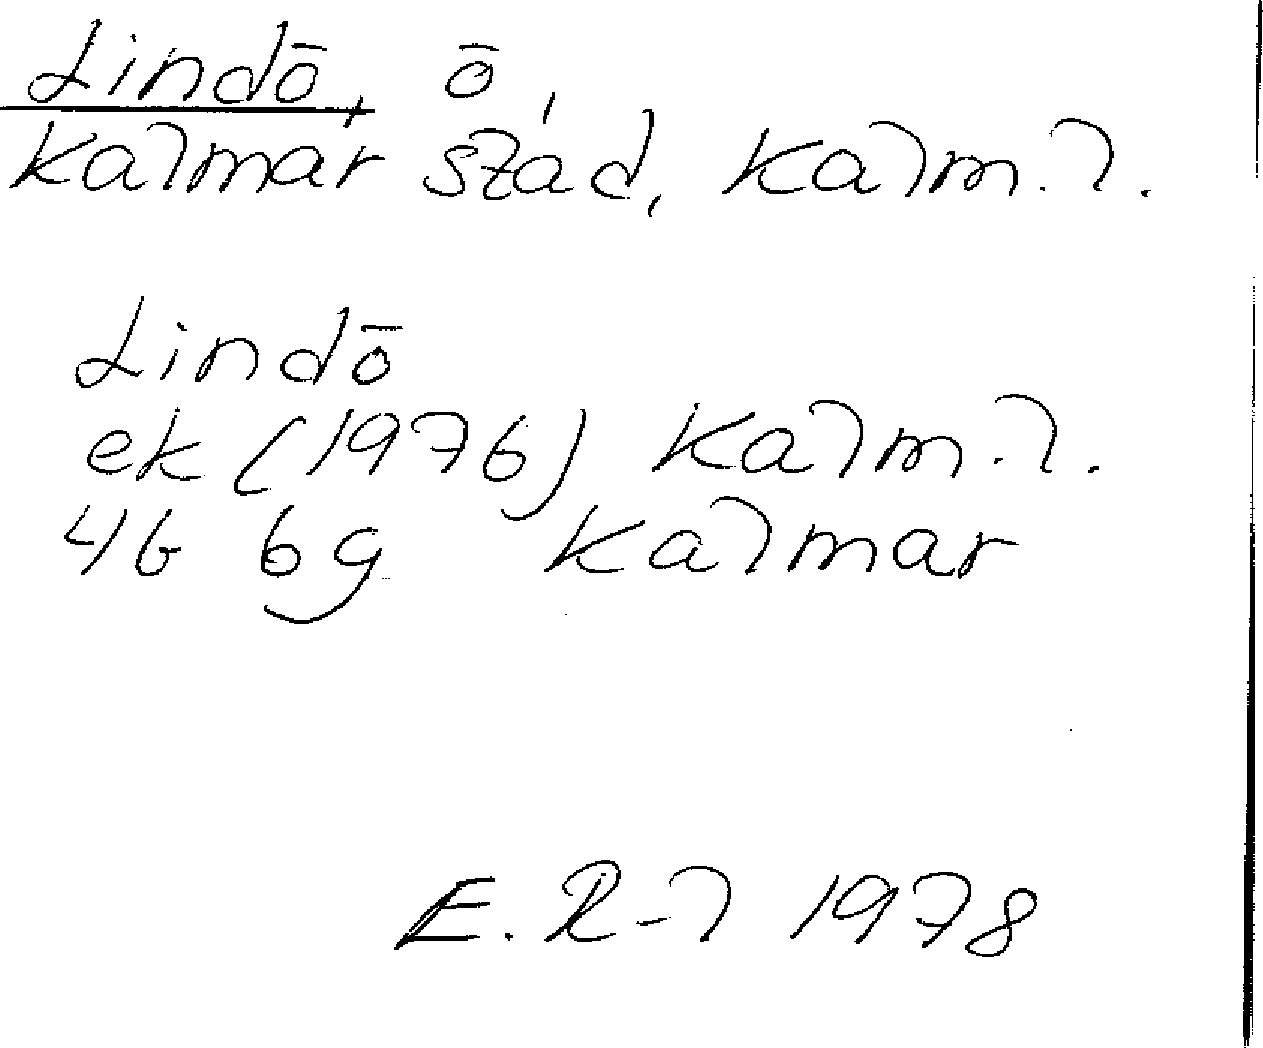 Lindö, ö,
Kalmar stad, Kalm. l.
Lindö
ek (1976) Kalm. l.
4G 6g Kalmar
E. R-l 1978